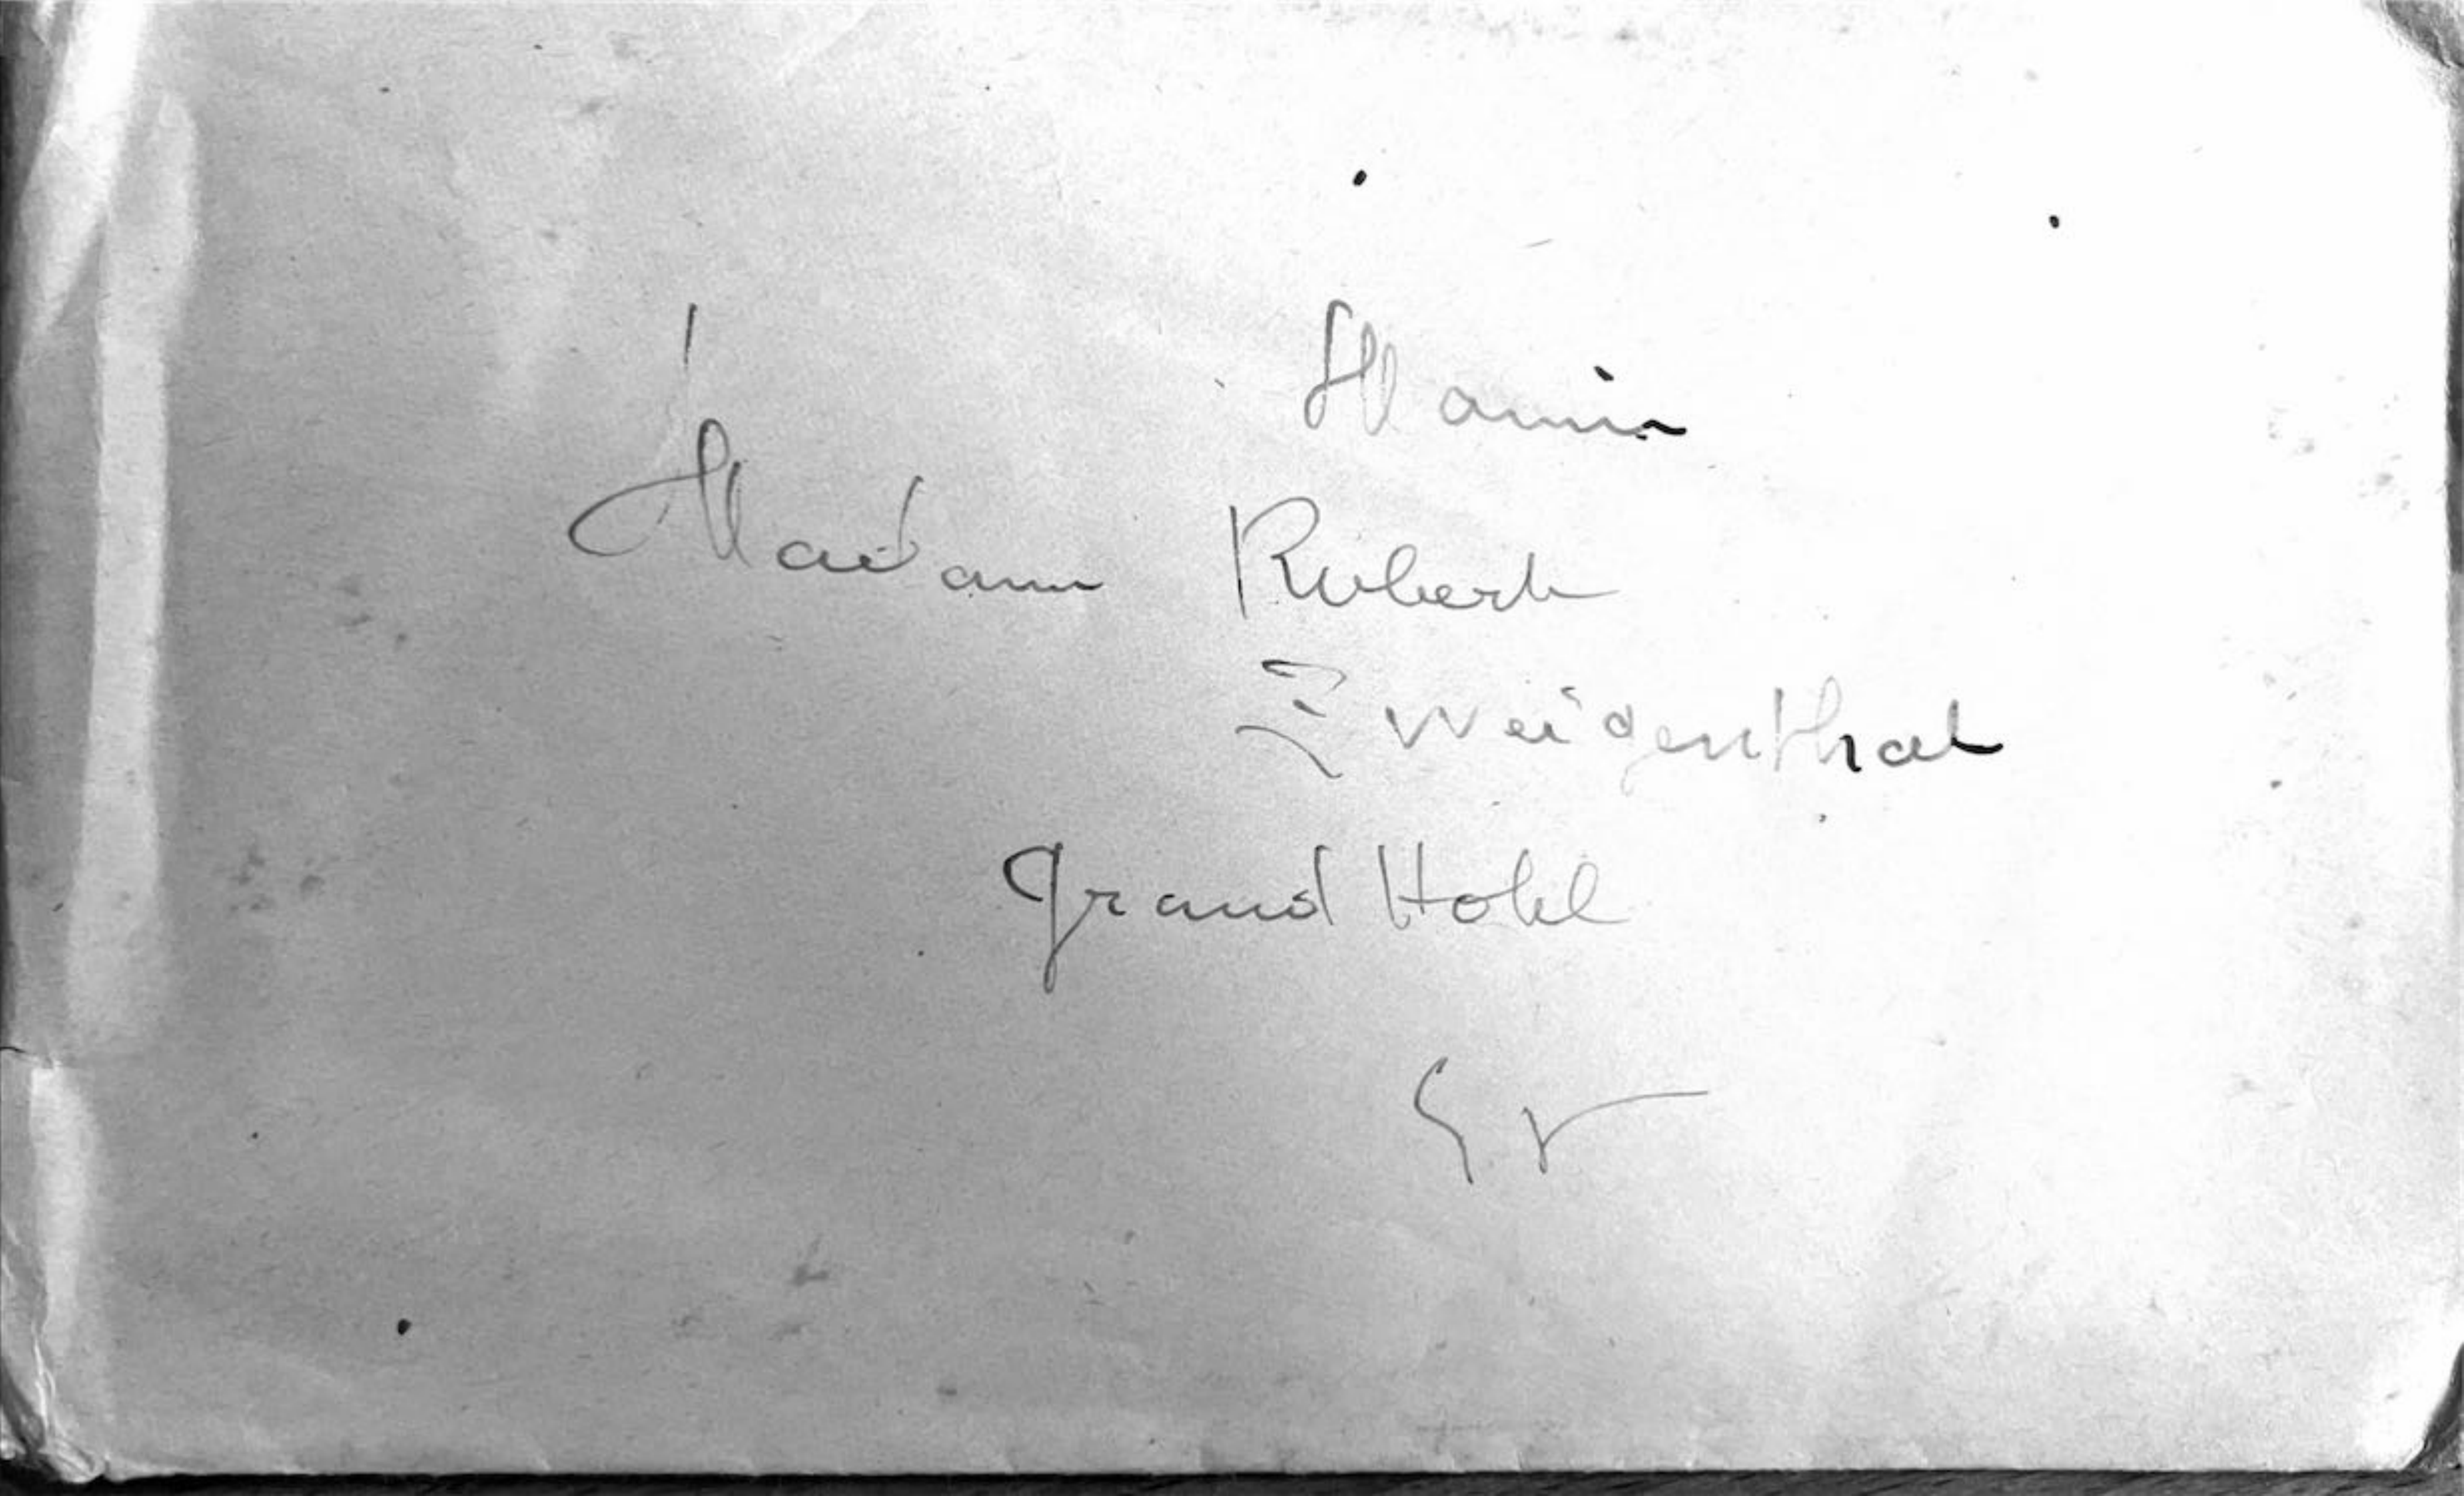 Madam Robert
Zweigenthal
Grand Hotel